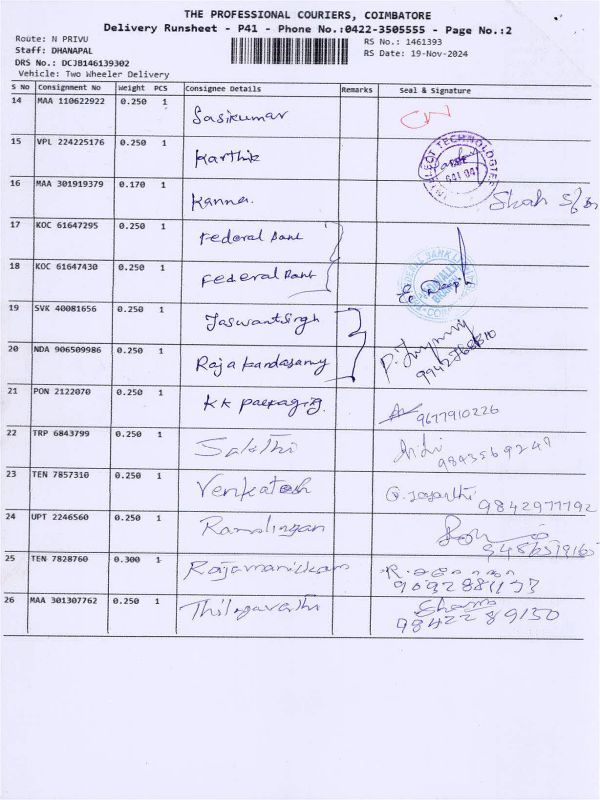 THE PROFESSIONAL COURIERS, COIMBATORE
Delivery Runsheet - P41 - Phone No.:0422-3505555 - Page No.:2
Route: N PRIVU
RS No.: 1461393
Staff: DHANAPAL
RS Date: 19-Nov-2024
DRS No.: DCJB146139302
Vehicle: Two Wheeler Delivery
S No Consignment No Weight PCS Consignee Details Remarks Seal & Signature
14 MAA 110622922 0.250 1 Sasikumar
15 VPL 224225176 0.250 1 Karthik
16 MAA 301919379 0.170 1 Kanna.
17 KOC 61647295 0.250 1 Federal Bank
18 KOC 61647430 0.250 1 Federal Bank
19 SVK 40081656 0.250 1 Jaswantsingh
20 NDA 906509986 0.250 1 Rajakandasamy
21 PON 2122070 0.250 1 KK packaging. 9677910226
22 TRP 6843799 0.250 1 Sakthi 9843569249
23 TEN 7857310 0.250 1 Venkatesh G. Jayanthi 9842977192
24 UPT 2246560 0.250 1 Ramalingam
25 TEN 7828760 0.300 1 Rajamanickam
26 MAA 301307762 0.250 1 Thilagavathi 9842289150